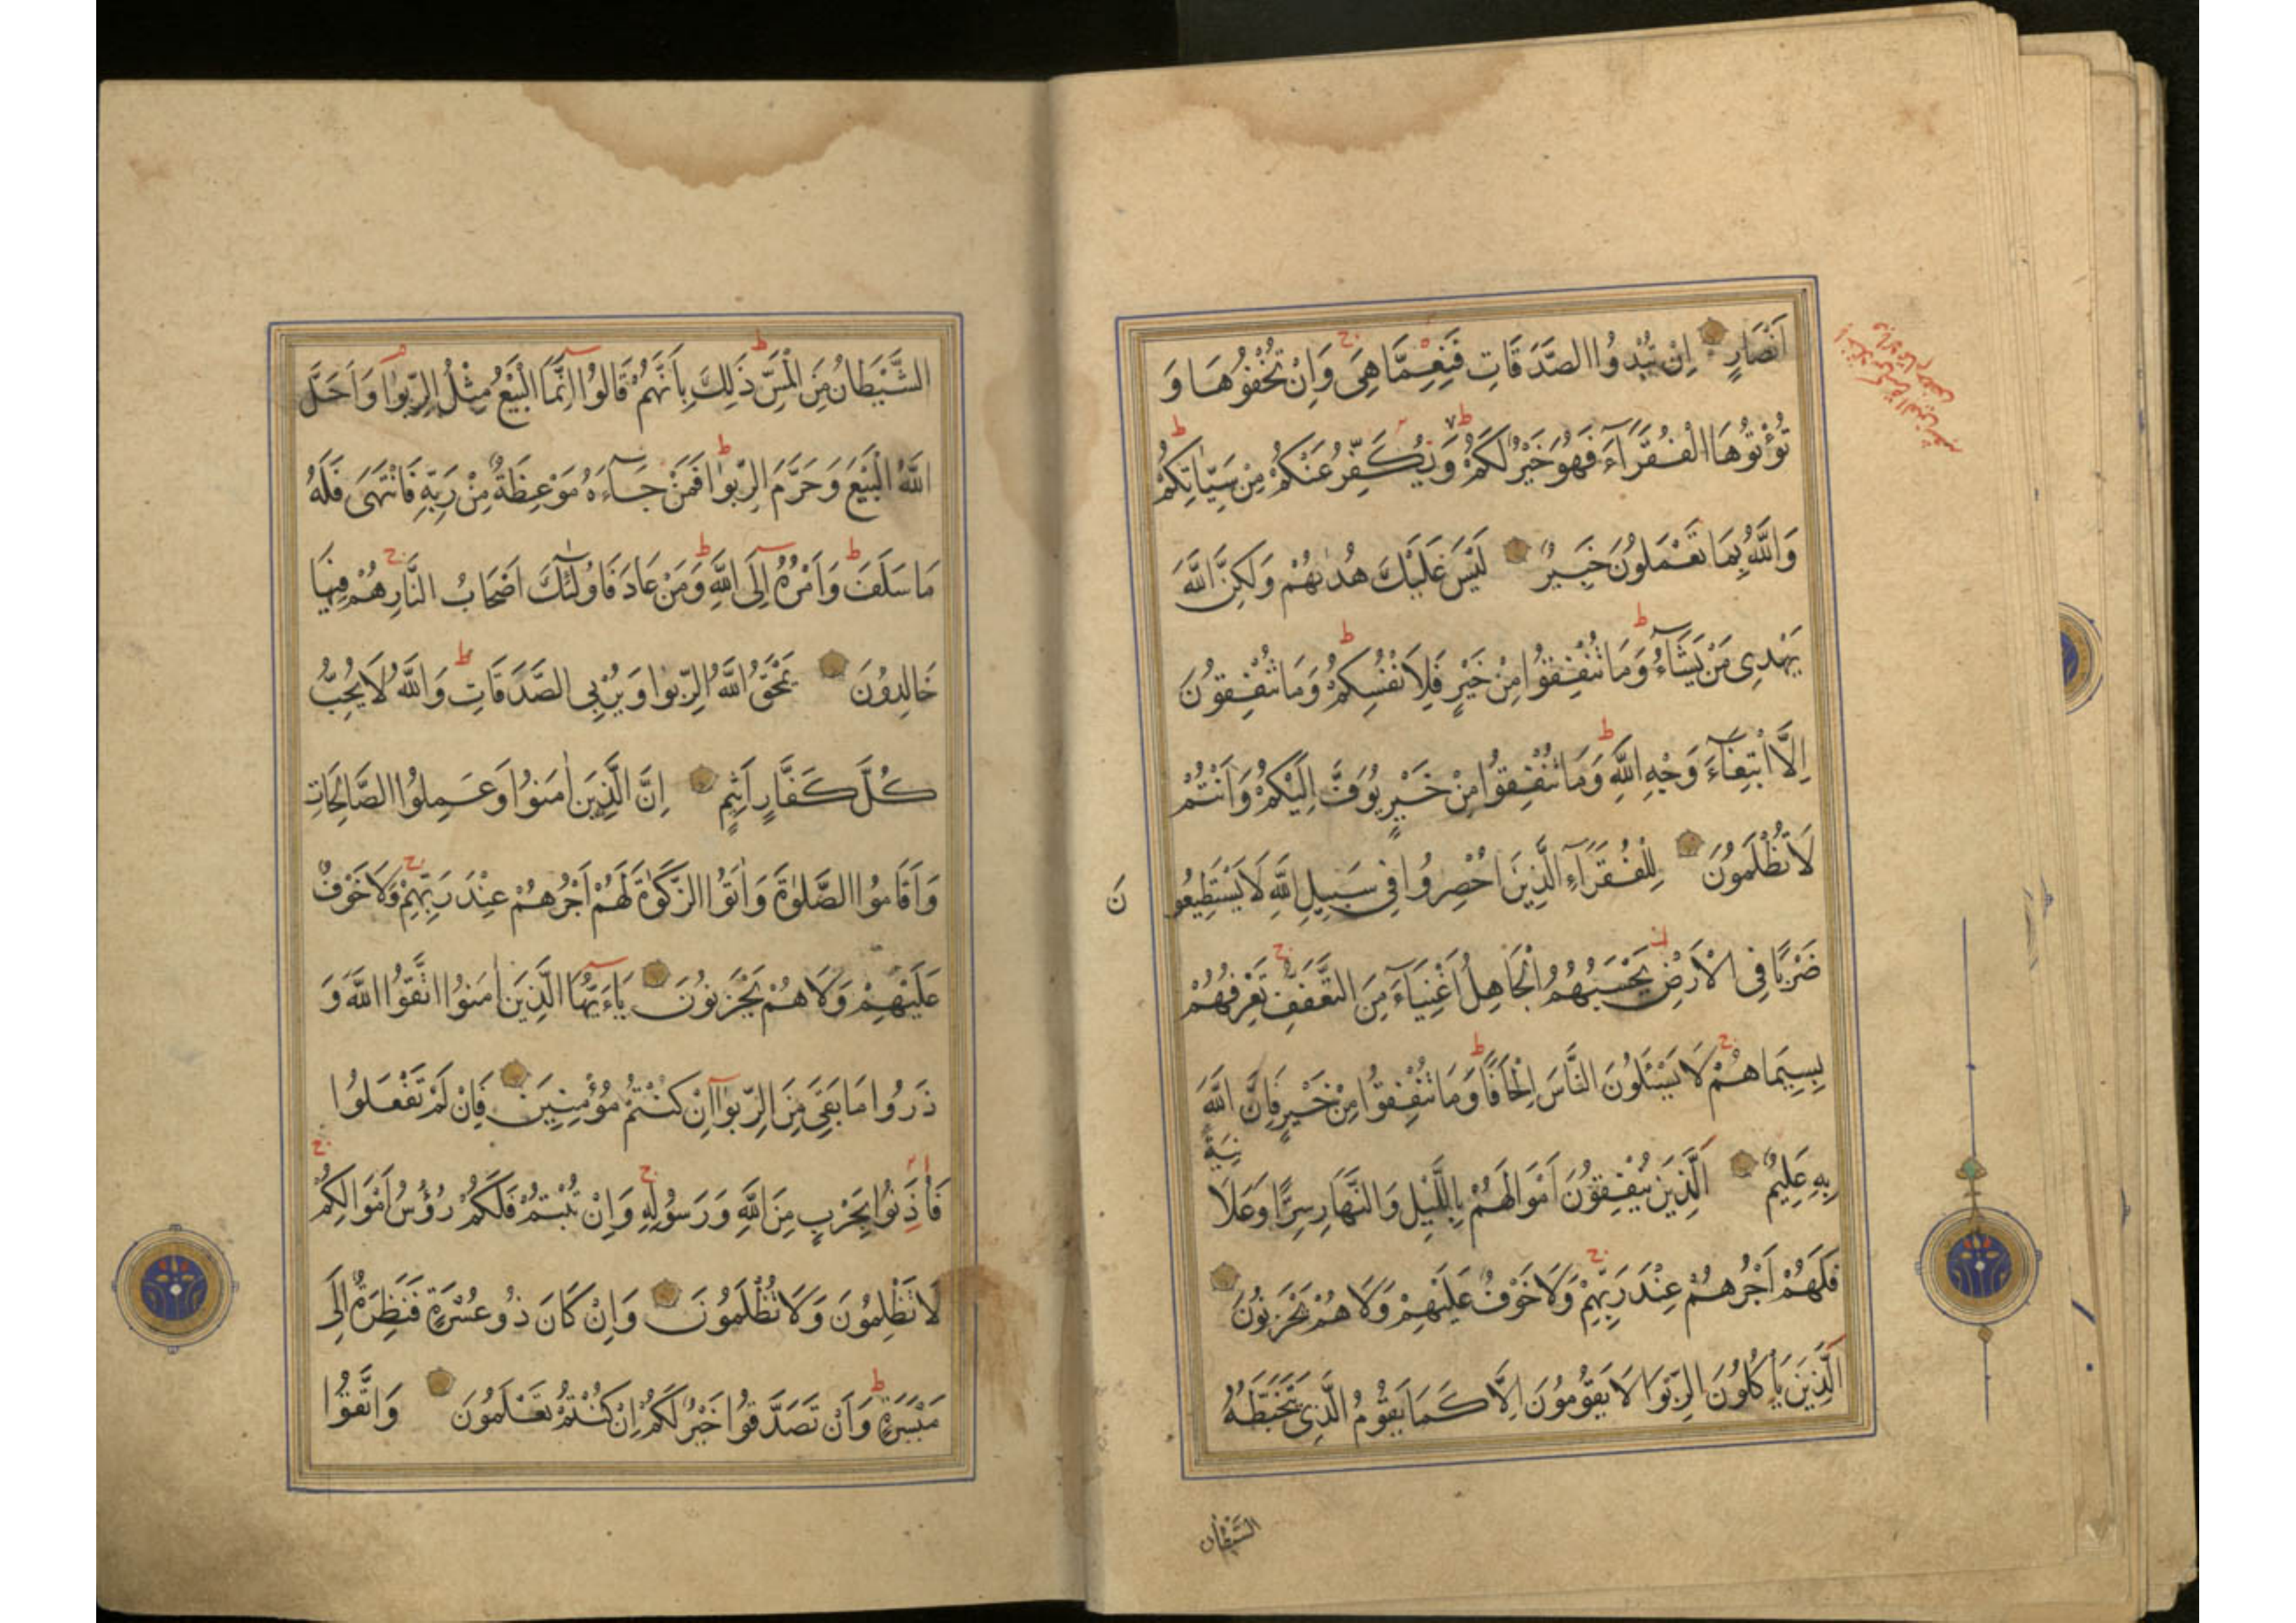 اَنْصَارٍ اِنْ تُبْدُوا الصَّدَقَاتِ فَنِعِمَّا هِىَ وَاِنْ تُخْفُوهَا وَ
تُؤْتُوهَا الْفُقَرَآءَ فَهُوَ خَيْرٌ لَكُمْ وَيُكَفِّرُ عَنْكُمْ مِنْ سَيِّاٰتِكُمْ
وَاللّٰهُ بِمَا تَعْمَلُونَ خَبِيرٌ لَيْسَ عَلَيْكَ هُدٰيهُمْ وَلٰكِنَّ اللّٰهَ
يَهْدِى مَنْ يَشَآءُ وَمَا تُنْفِقُوا مِنْ خَيْرٍ فَلِاَنْفُسِكُمْ وَمَا تُنْفِقُونَ
اِلَّا ابْتِغَآءَ وَجْهِ اللّٰهِ وَمَا تُنْفِقُوا مِنْ خَيْرٍ يُوَفَّ اِلَيْكُمْ وَاَنْتُمْ
لَا تُظْلَمُونَ لِلْفُقَرَآءِ الَّذِينَ اُحْصِرُوا فِى سَبِيلِ اللّٰهِ لَا يَسْتَطِيعُونَ
ضَرْبًا فِى الْاَرْضِ يَحْسَبُهُمُ الْجَاهِلُ اَغْنِيَآءَ مِنَ التَّعَفُّفِ تَعْرِفُهُمْ
بِسِيمَاهُمْ لَا يَسْئَلُونَ النَّاسَ اِلْحَافًا وَمَا تُنْفِقُوا مِنْ خَيْرٍ فَاِنَّ اللّٰهَ
بِهِ عَلِيمٌ اَلَّذِينَ يُنْفِقُونَ اَمْوَالَهُمْ بِاللَّيْلِ وَالنَّهَارِ سِرًّا وَعَلَانِيَةً
فَلَهُمْ اَجْرُهُمْ عِنْدَ رَبِّهِمْ وَلَا خَوْفٌ عَلَيْهِمْ وَلَا هُمْ يَحْزَنُونَ
اَلَّذِينَ يَأْكُلُونَ الرِّبٰوا لَا يَقُومُونَ اِلَّا كَمَا يَقُومُ الَّذِى يَتَخَبَّطُهُ
الشَّيْطَان
الشَّيْطَانُ مِنَ الْمَسِّ ذٰلِكَ بِاَنَّهُمْ قَالُوا اِنَّمَا الْبَيْعُ مِثْلُ الرِّبٰوا وَاَحَلَّ
اللّٰهُ الْبَيْعَ وَحَرَّمَ الرِّبٰوا فَمَنْ جَآءَهُ مَوْعِظَةٌ مِنْ رَبِّهِ فَانْتَهَى فَلَهُ
مَا سَلَفَ وَاَمْرُهُ اِلَى اللّٰهِ وَمَنْ عَادَ فَاُولٰئِكَ اَصْحَابُ النَّارِ هُمْ فِيهَا
خَالِدُونَ يَمْحَقُ اللّٰهُ الرِّبٰوا وَيُرْبِى الصَّدَقَاتِ وَاللّٰهُ لَا يُحِبُّ
كُلَّ كَفَّارٍ اَثِيمٍ اِنَّ الَّذِينَ اٰمَنُوا وَعَمِلُوا الصَّالِحَاتِ
وَاَقَامُوا الصَّلٰوةَ وَاٰتَوُا الزَّكٰوةَ لَهُمْ اَجْرُهُمْ عِنْدَ رَبِّهِمْ وَلَا خَوْفٌ
عَلَيْهِمْ وَلَا هُمْ يَحْزَنُونَ يَاءَيُّهَا الَّذِينَ اٰمَنُوا اتَّقُوا اللّٰهَ وَ
ذَرُوا مَا بَقِىَ مِنَ الرِّبٰوا اِنْ كُنْتُمْ مُؤْمِنِينَ فَاِنْ لَمْ تَفْعَلُوا
فَأْذَنُوا بِحَرْبٍ مِنَ اللّٰهِ وَرَسُولِهِ وَاِنْ تُبْتُمْ فَلَكُمْ رُؤُسُ اَمْوَالِكُمْ
لَا تَظْلِمُونَ وَلَا تُظْلَمُونَ وَاِنْ كَانَ ذُو عُسْرَةٍ فَنَظِرَةٌ اِلَى
مَيْسَرَةٍ وَاَنْ تَصَدَّقُوا خَيْرٌ لَكُمْ اِنْ كُنْتُمْ تَعْلَمُونَ وَاتَّقُوا